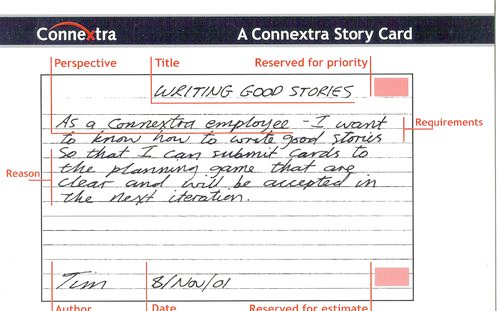 Connextra A Connextra Story Card
Perspective Title Reserved for priority
WRITING GOOD STORIES
As a Connextra employee - I want
Requirements
to know how to write good stories
So that I can submit cards to
the planning game that are
Reason
clear and will be accepted in
the next iteration.
Tim 8/Nov/01
Author Date Reserved for estimate